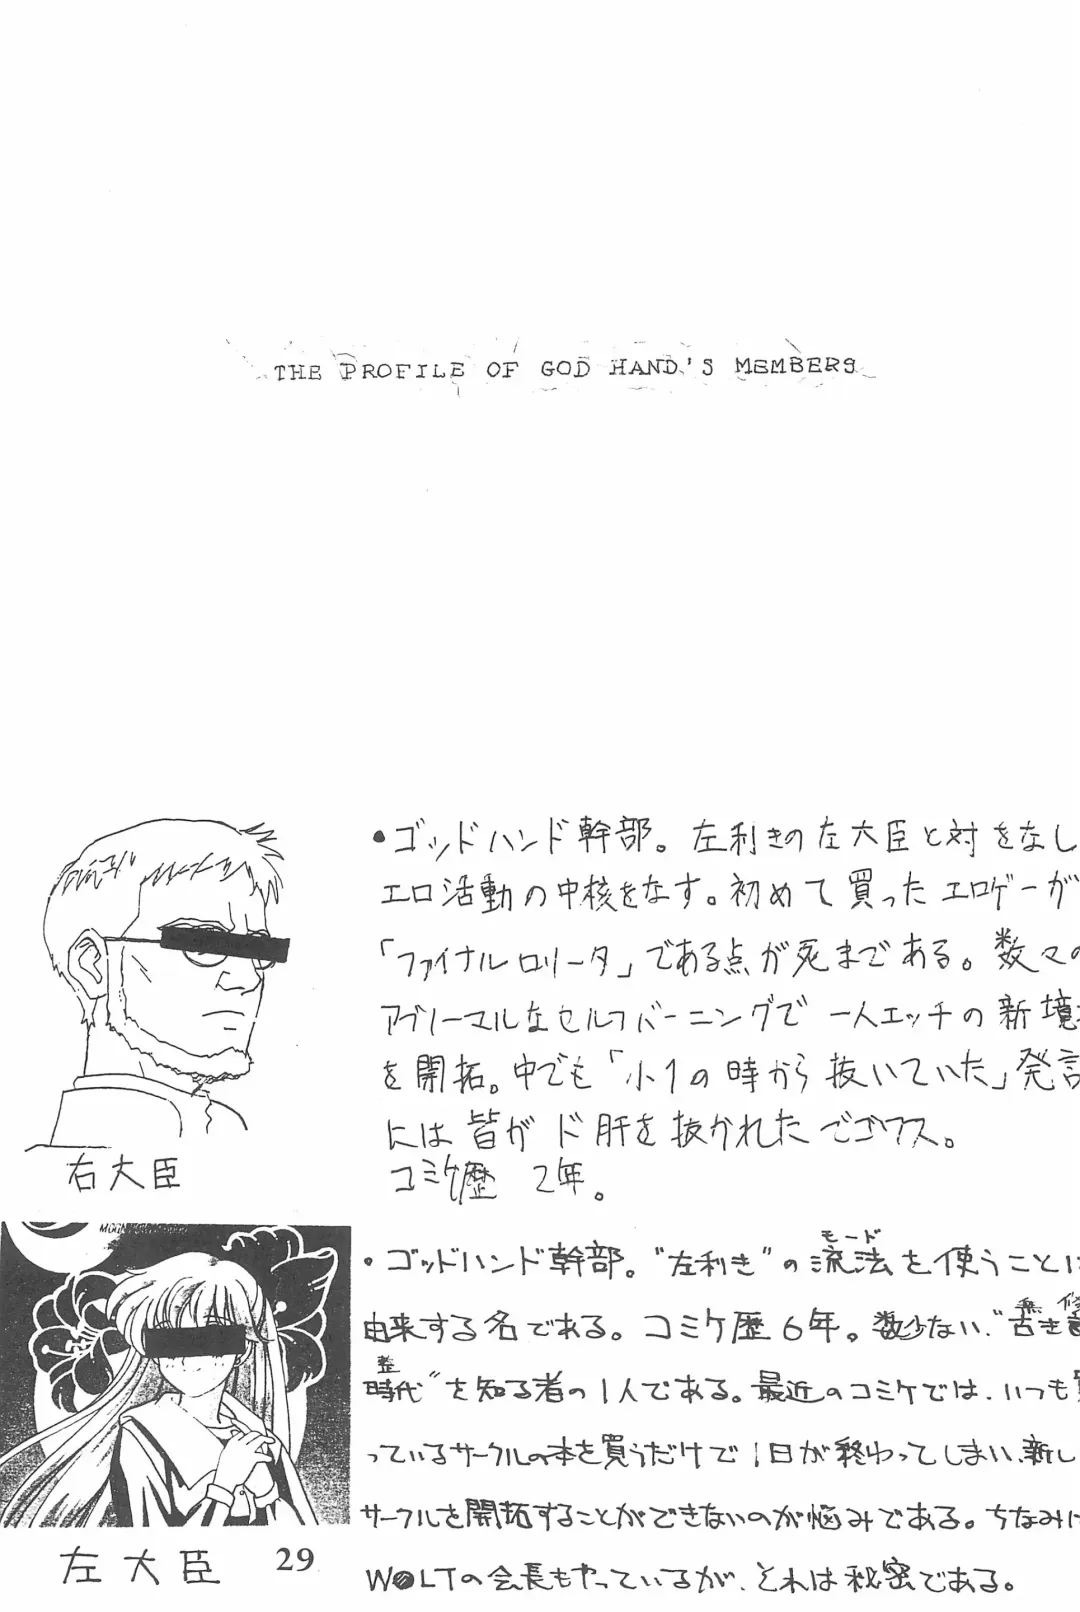 THE PROFILE OF GOD HAND'S MEMBERS
•ゴッドハンド幹部。左利きの左大臣と対をなし
エロ活動の中核をなす。初めて買ったエロゲーが
「ファイナルロリータ」である点が死まである。数々の
アブノーマルなセルフバーニングで一人エッチの新境
を開拓。中でも「小1の時から抜いていた」発言
には皆がド肝を抜かれたでゴワス。
コミケ歴 2年。
右大臣
•ゴッドハンド幹部。"左利き"の流法を使うことに
モード
由来する名である。コミケ歴6年。数少ない、"古き
時代"を知る者の1人である。最近のコミケでは、いつも買
っているサークルの本を買うだけで1日が終わってしまい、新し
サークルを開拓することができないのが悩みである。ちなみに
W●LTの会長もやっているが、それは秘密である。
左大臣
29